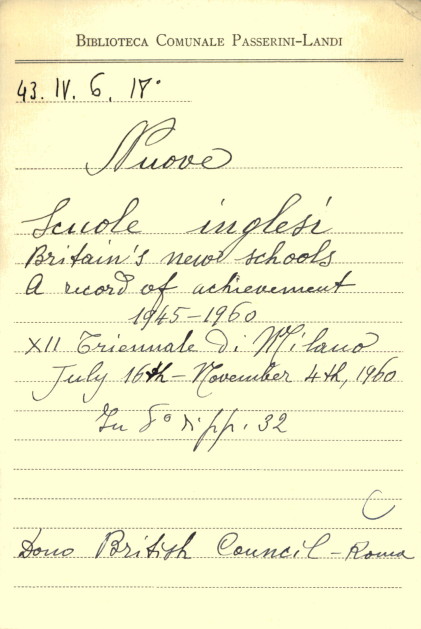 BIBLIOTECA COMUNALE PASSERINI-LANDI
43. IV. 6. 17°
Nuove
Scuole inglesi
Britain's new schools
A record of achievement
1945-1960
XII Triennale di Milano
July 16th - November 4th, 1960
In 8° di pp. 32
C
Dono British Council - Roma